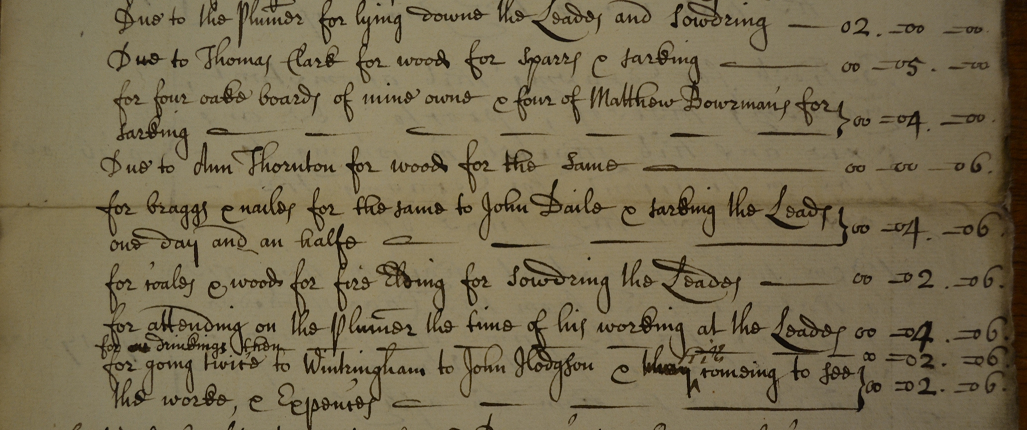 Due to the Plumer for lying downe the Leades and Sowdring — 02. -00 -00
Due to Thomas Clark for wood for Sparrs & sarking — 00 -05. -00
for four oake boards of mine owne & four of Matthew Bowrmans for
sarking — 00 -04. -00.
Due to Ann Thornton for wood for the same — 00 -00 -06.
for braggs & nailes for the same to John Baile & sarking the Leads
one day and an halfe — 00 -04. -06.
for coales & wood for fire Elding for Sowdring the Leades — 00 -02. -06.
for attending on the Plumer the time of his working at the Leades 00 -04. -06.
for drinkings then 00 -02. -06.
for going twice to Wintringham to John Hodgson & his comeing to see
the worke, & Expences — 00 -02. -06.